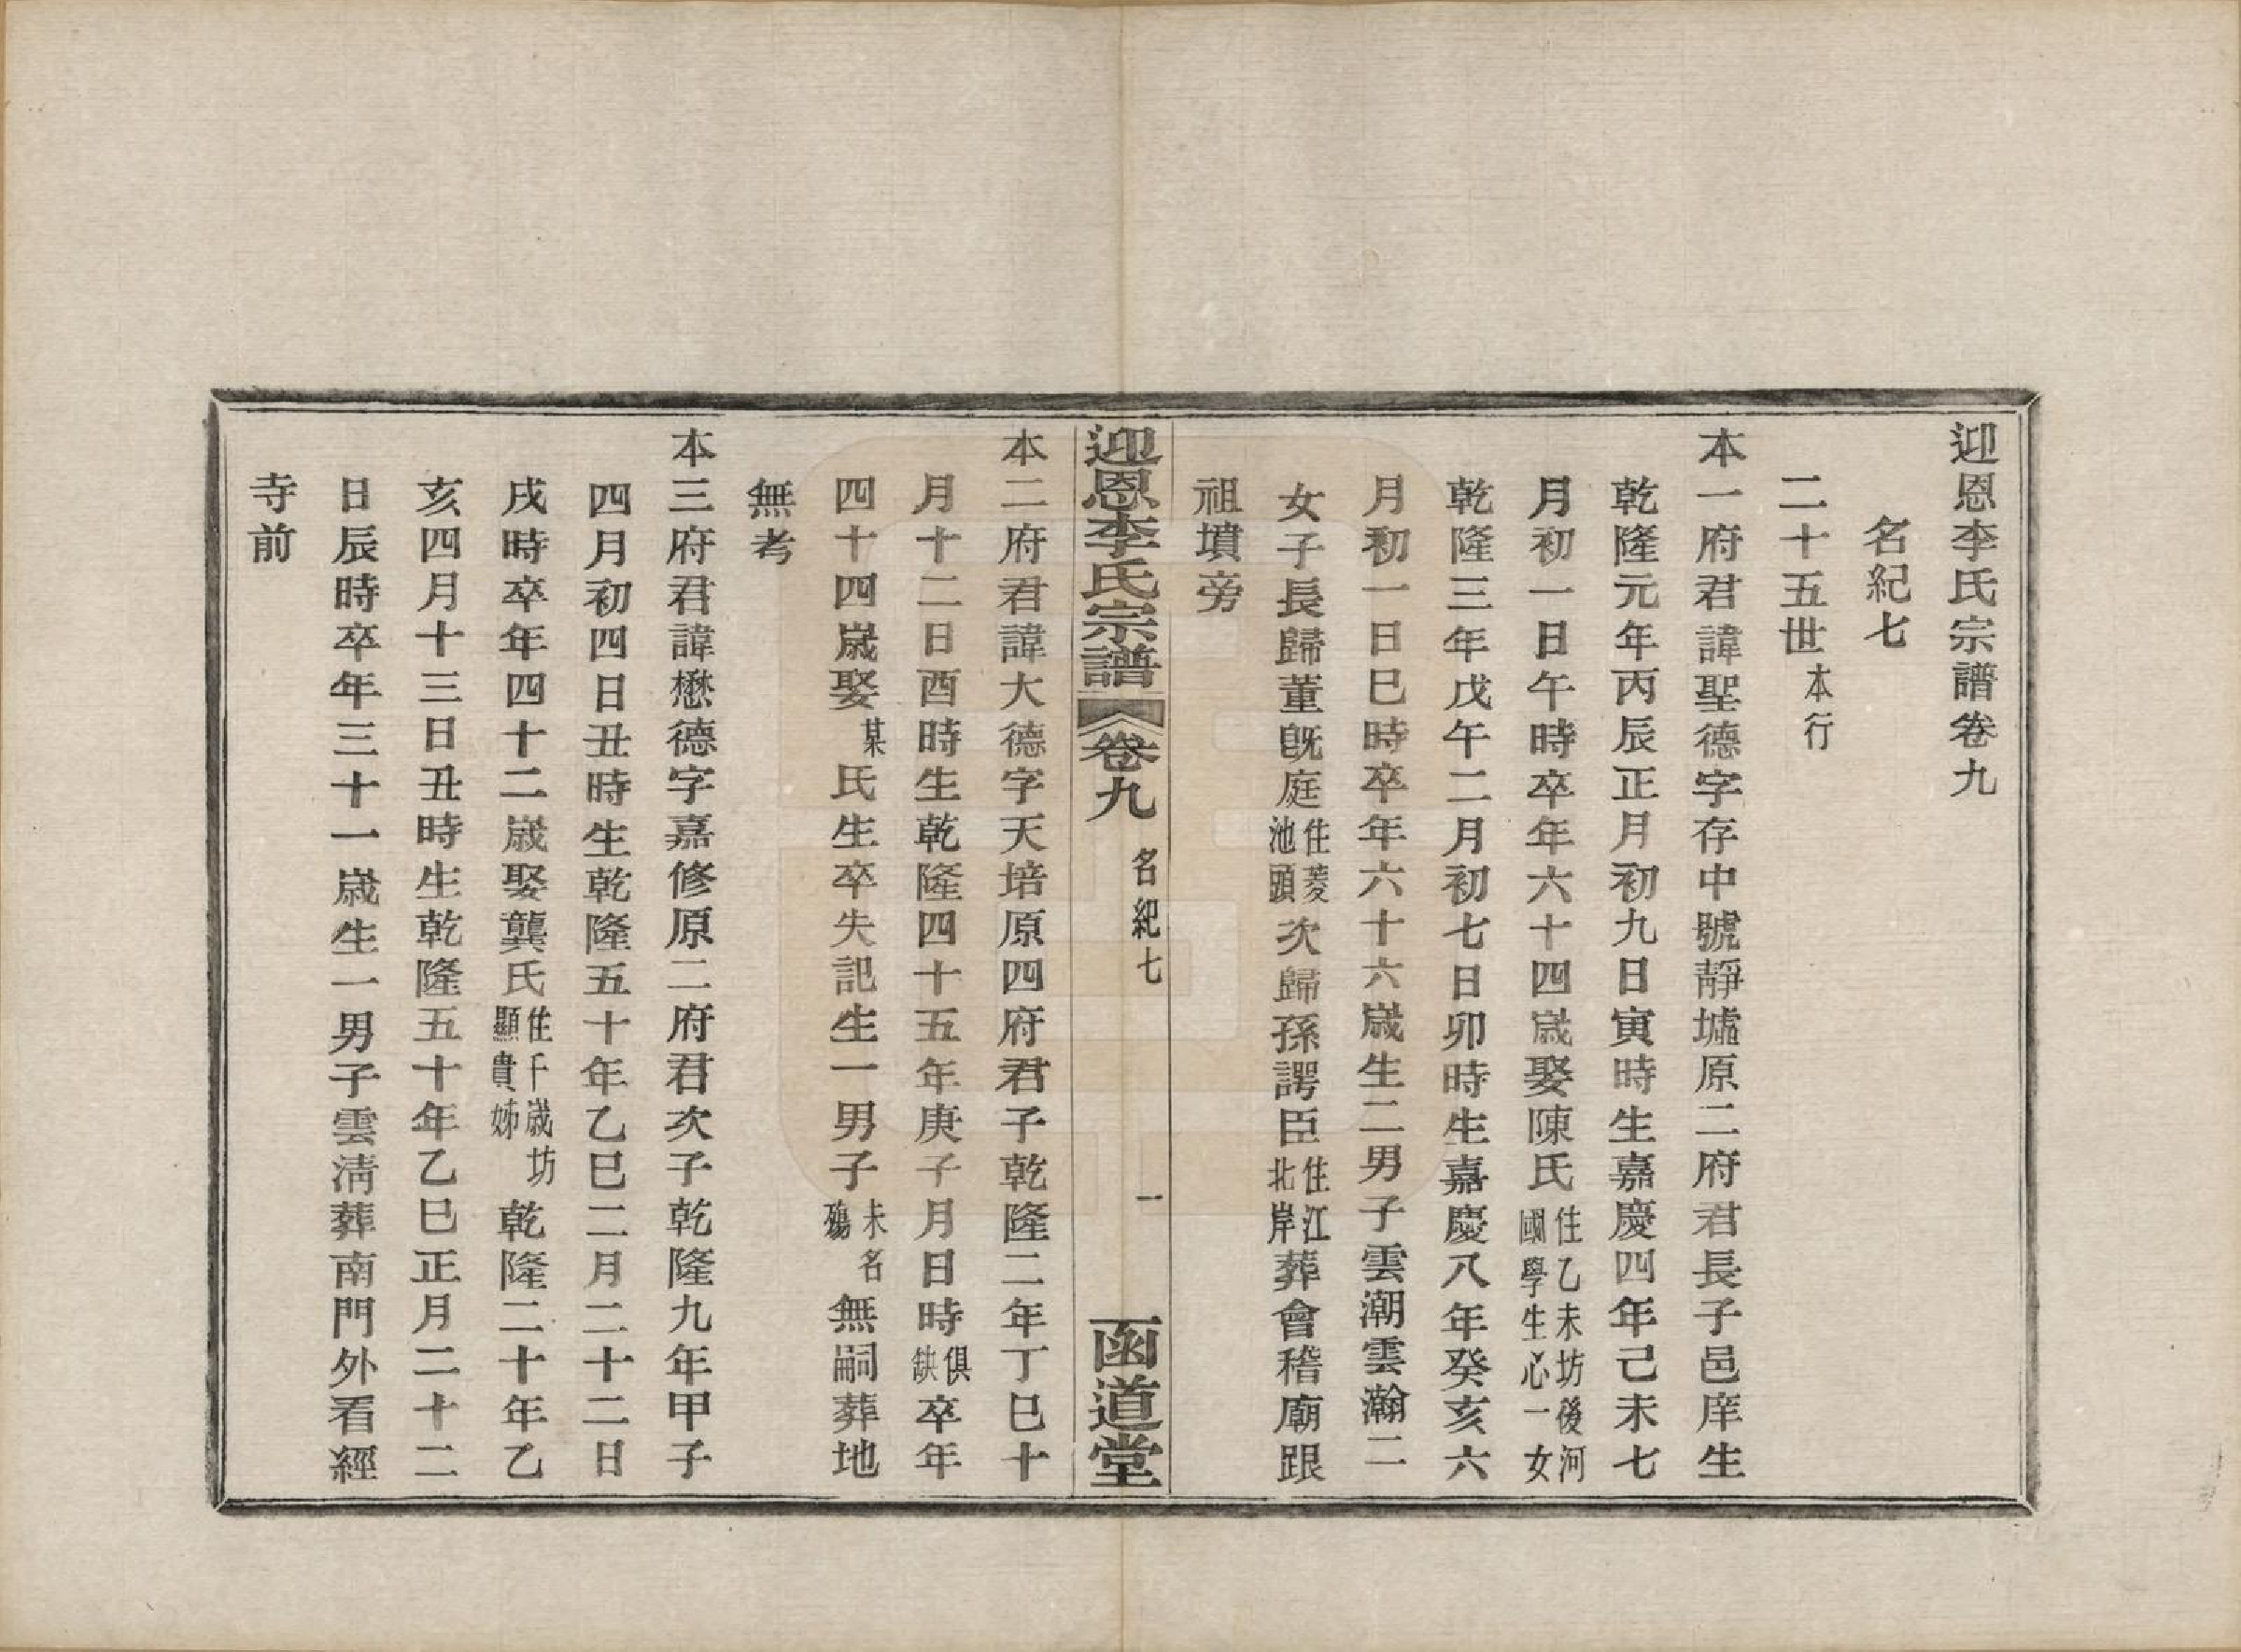 迎恩李氏宗譜卷九
名紀七
二十五世本行
本一府君諱聖德字存中號靜墟原二府君長子邑庠生
乾隆元年丙辰正月初九日寅時生嘉慶四年己未七
月初一日午時卒年六十四歲娶陳氏住乙未坊後河國學生心一女
乾隆三年戊午二月初七日卯時生嘉慶八年癸亥六
月初一日巳時卒年六十六歲生二男子雲潮雲瀚二
女子長歸董旣庭住菱池頭次歸孫諤臣住江北岸葬會稽廟跟
祖墳旁
迎恩李氏宗譜 卷九 名紀七 一 函道堂
本二府君諱大德字天培原四府君子乾隆二年丁巳十
月十二日酉時生乾隆四十五年庚子月日時俱缺卒年
四十四歲娶某氏生卒失記生一男子未名殤無嗣葬地
無考
本三府君諱懋德字嘉修原二府君次子乾隆九年甲子
四月初四日丑時生乾隆五十年乙巳二月二十二日
戌時卒年四十二歲娶龔氏住千歲坊顯貴姊乾隆二十年乙
亥四月十三日丑時生乾隆五十年乙巳正月二十二
日辰時卒年三十一歲生一男子雲淸葬南門外看經
寺前